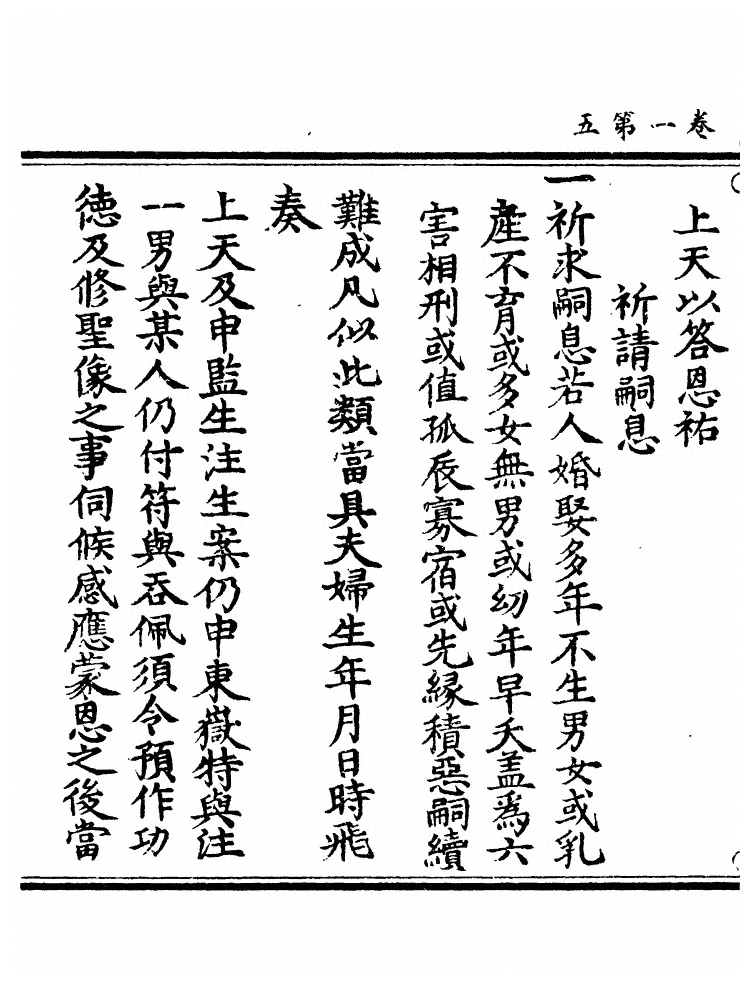 卷一第五
上天以答恩祐
祈請嗣息
一祈求嗣息若人婚娶多年不生男女或乳
產不育或多女無男或幼年早夭盖爲六
害相刑或值孤辰寡宿或先緣積惡嗣續
難成凡似此類當具夫婦生年月日時飛
奏
上天及申監生注生案仍申東嶽特與注
一男與某人仍付符與吞佩須令預作功
德及修聖像之事伺候感應蒙恩之後當